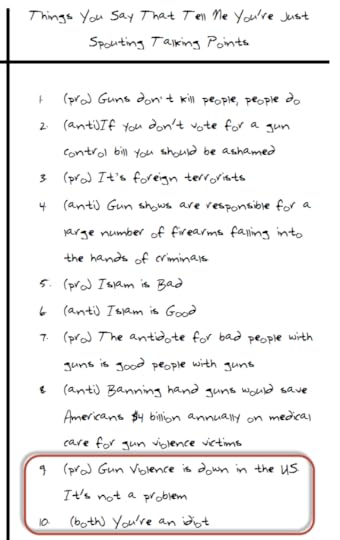 Things You Say That Tell Me You're Just
Spouting Talking Points
1. (pro) Guns don't kill people, people do
2. (anti)If you don't vote for a gun
control bill you should be ashamed
3. (pro) It's foreign terrorists
4. (anti) Gun shows are responsible for a
large number of firearms falling into
the hands of criminals
5. (pro) Islam is Bad
6. (anti) Islam is Good
7. (pro) The antidote for bad people with
guns is good people with guns
8. (anti) Banning hand guns would save
Americans $4 billion annually on medical
care for gun violence victims
9. (pro) Gun Violence is down in the US.
It's not a problem
10. (both) You're an idiot